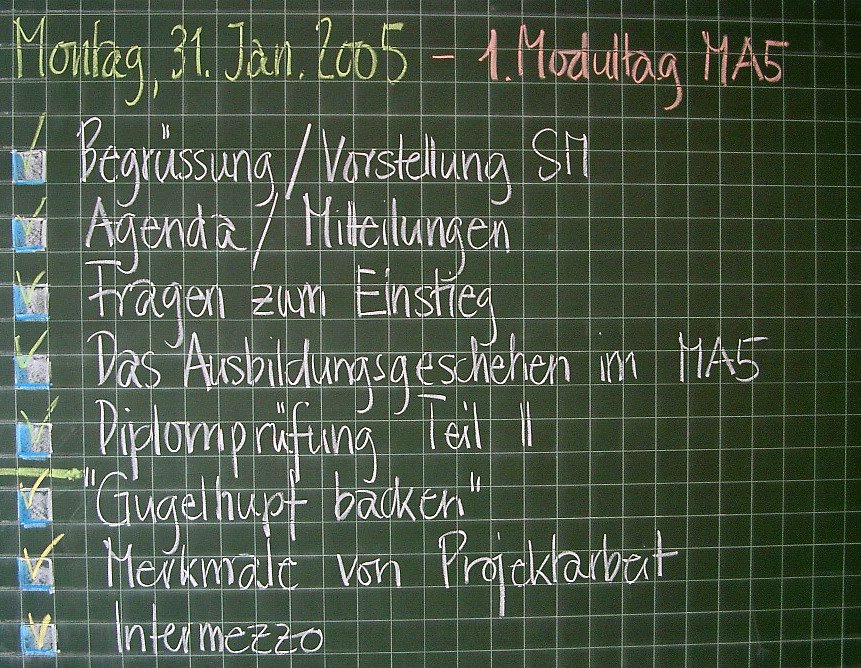 Montag, 31. Jan. 2005 – 1. Modultag MA5
Begrüssung / Vorstellung SM
Agenda / Mitteilungen
Fragen zum Einstieg
Das Ausbildungsgeschehen im MA5
Diplomprüfung Teil II
"Gugelhupf backen"
Merkmale von Projektarbeit
Intermezzo